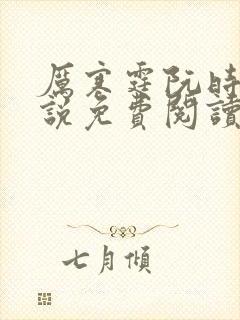 厲寒霆阮時
說免費閱讀
七月傾